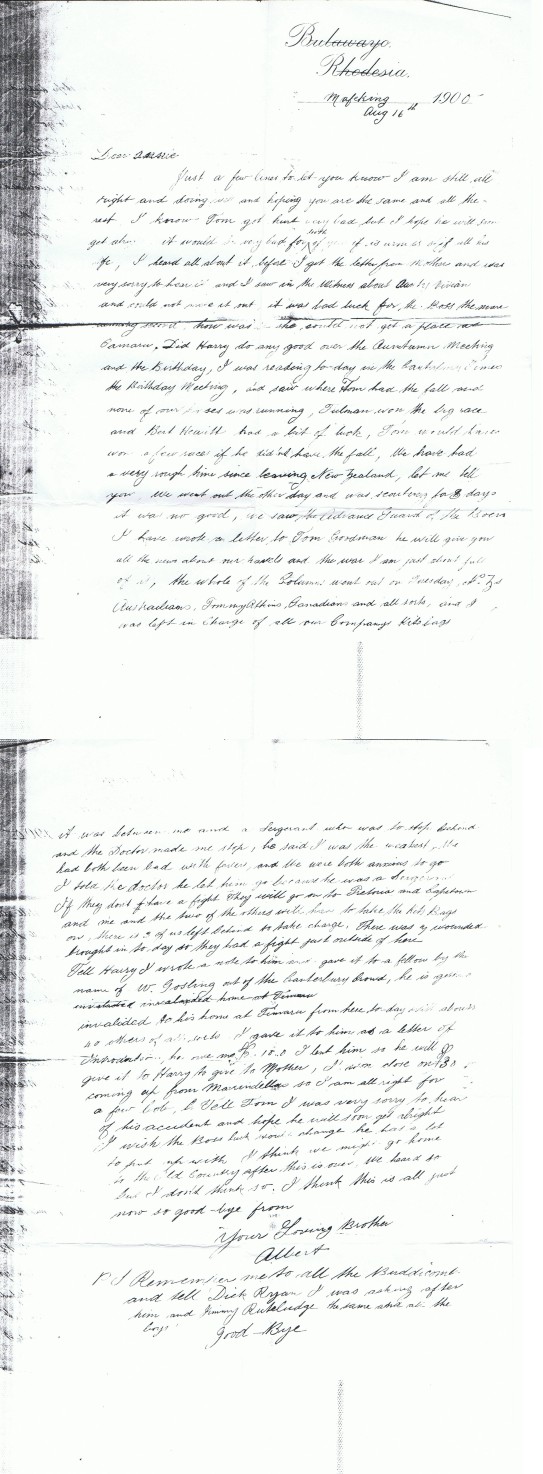 Bulawayo.
Rhodesia.
Mafeking 1900
Aug 16th
Dear Annie
Just a few lines to let you know I am still all
right and doing and hoping you are the same and all the
rest I know Tom got hurt very bad but I hope he will soon
get it would be very bad for with if all his
I heard all about it before I got the letter from Mother and was
very sorry to hear it and I saw in the Witness about
and could not make it out it was bad luck for the Boss the mare
how was she could not get a place at
Oamaru. Did Harry do any good over the Auntumn Meeting
and the Birthday, I was reading to-day in the Canterbury Times
the Birthday Meeting, and saw where Tom had the fall and
none of our horses was running, Tulman won the big race
and Bert Hewitt had a bit of luck, Tom would have
won a few races if he did'nt have the fall, We have had
a very rough time since leaving New Zealand, let me tell
you. We went out the other day and was scouting for 8 days
it was no good, we saw the Advance Guard of the Boers
I have wrote a letter to Tom Goodman he will give you
all the news about our travels and the war I am just about full
of it, the whole of the Column went out on Tuesday, N.Zs
Australians, Tommy Atkins, Canadians and all sorts, and I
was left in charge of all our Companys Kitbags
it was between me and a Sergeant who was to stop behind
and the Doctor made me stop, he said I was the weakest. We
had both been bad with fever, and we were both anxious to go
I told the doctor he let him go because he was a Sergeant
If they dont have a fight They will go on to Pretoria and Capetown
and me and the two of the others will have to take the Kit Bags
on, there is 3 of us left behind to take charge, There was 9 wounded
brought in to-day so they had a fight just outside of here
Tell Harry I wrote a note to him and gave it to a fellow by the
name of W. Gosling out of the Canterbury Crowd, he is
invalided home at Timaru
invalided to his home at Timaru from here to-day with about
20 others of all sorts I gave it to him as a letter of
Introduction, he owe me £1.10.0 I lent him so he will
give it to Harry to give to Mother, I won close on £30
coming up from Marandellas so I am all right for
a few bob, Tell Tom I was very sorry to hear
of his accident and hope he will soon get alright
I wish the Boss luck would change he has a lot
to put up with, I think we might go home
to the Old Country after this is over, We heard so
but I don't think so. I think this is all just
now so good-bye from
Your Loving Brother
Albert
P.S Remember me to all the Buddicomb
and tell Dick Ryan I was asking after
him and Jimmy Rutledge the same also all the
boys
Good-Bye